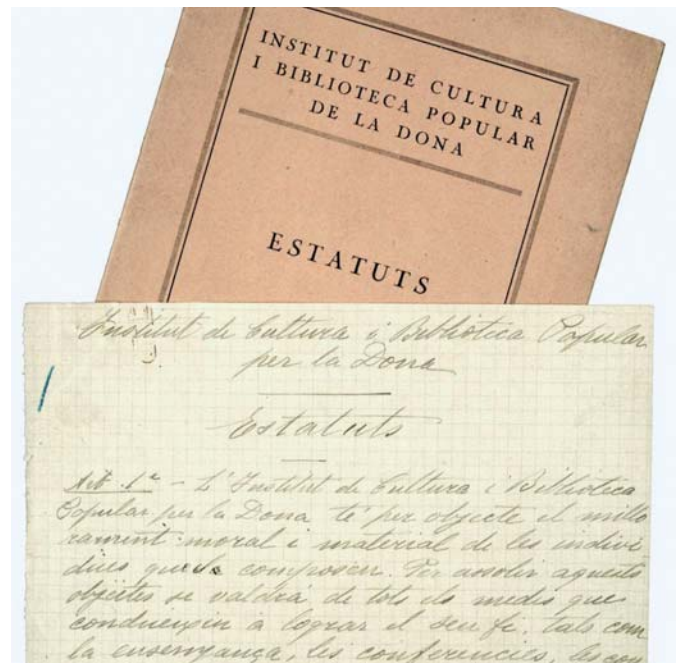 INSTITUT DE CULTURA
I BIBLIOTECA POPULAR
DE LA DONA
ESTATUTS
Institut de Cultura i Bibliotica Popular
per la Dona
Estatuts
Art. 1er - L'Institut de Cultura i Biblioteca
Popular per la Dona té per objecte el millo
rament moral i material de les indivi
dues que la composen. Per assolir aquests
objectes se valdrá de tots els medis que
condueixin a lograr el seu fi, tals com
la ensenyança, les conferencies,